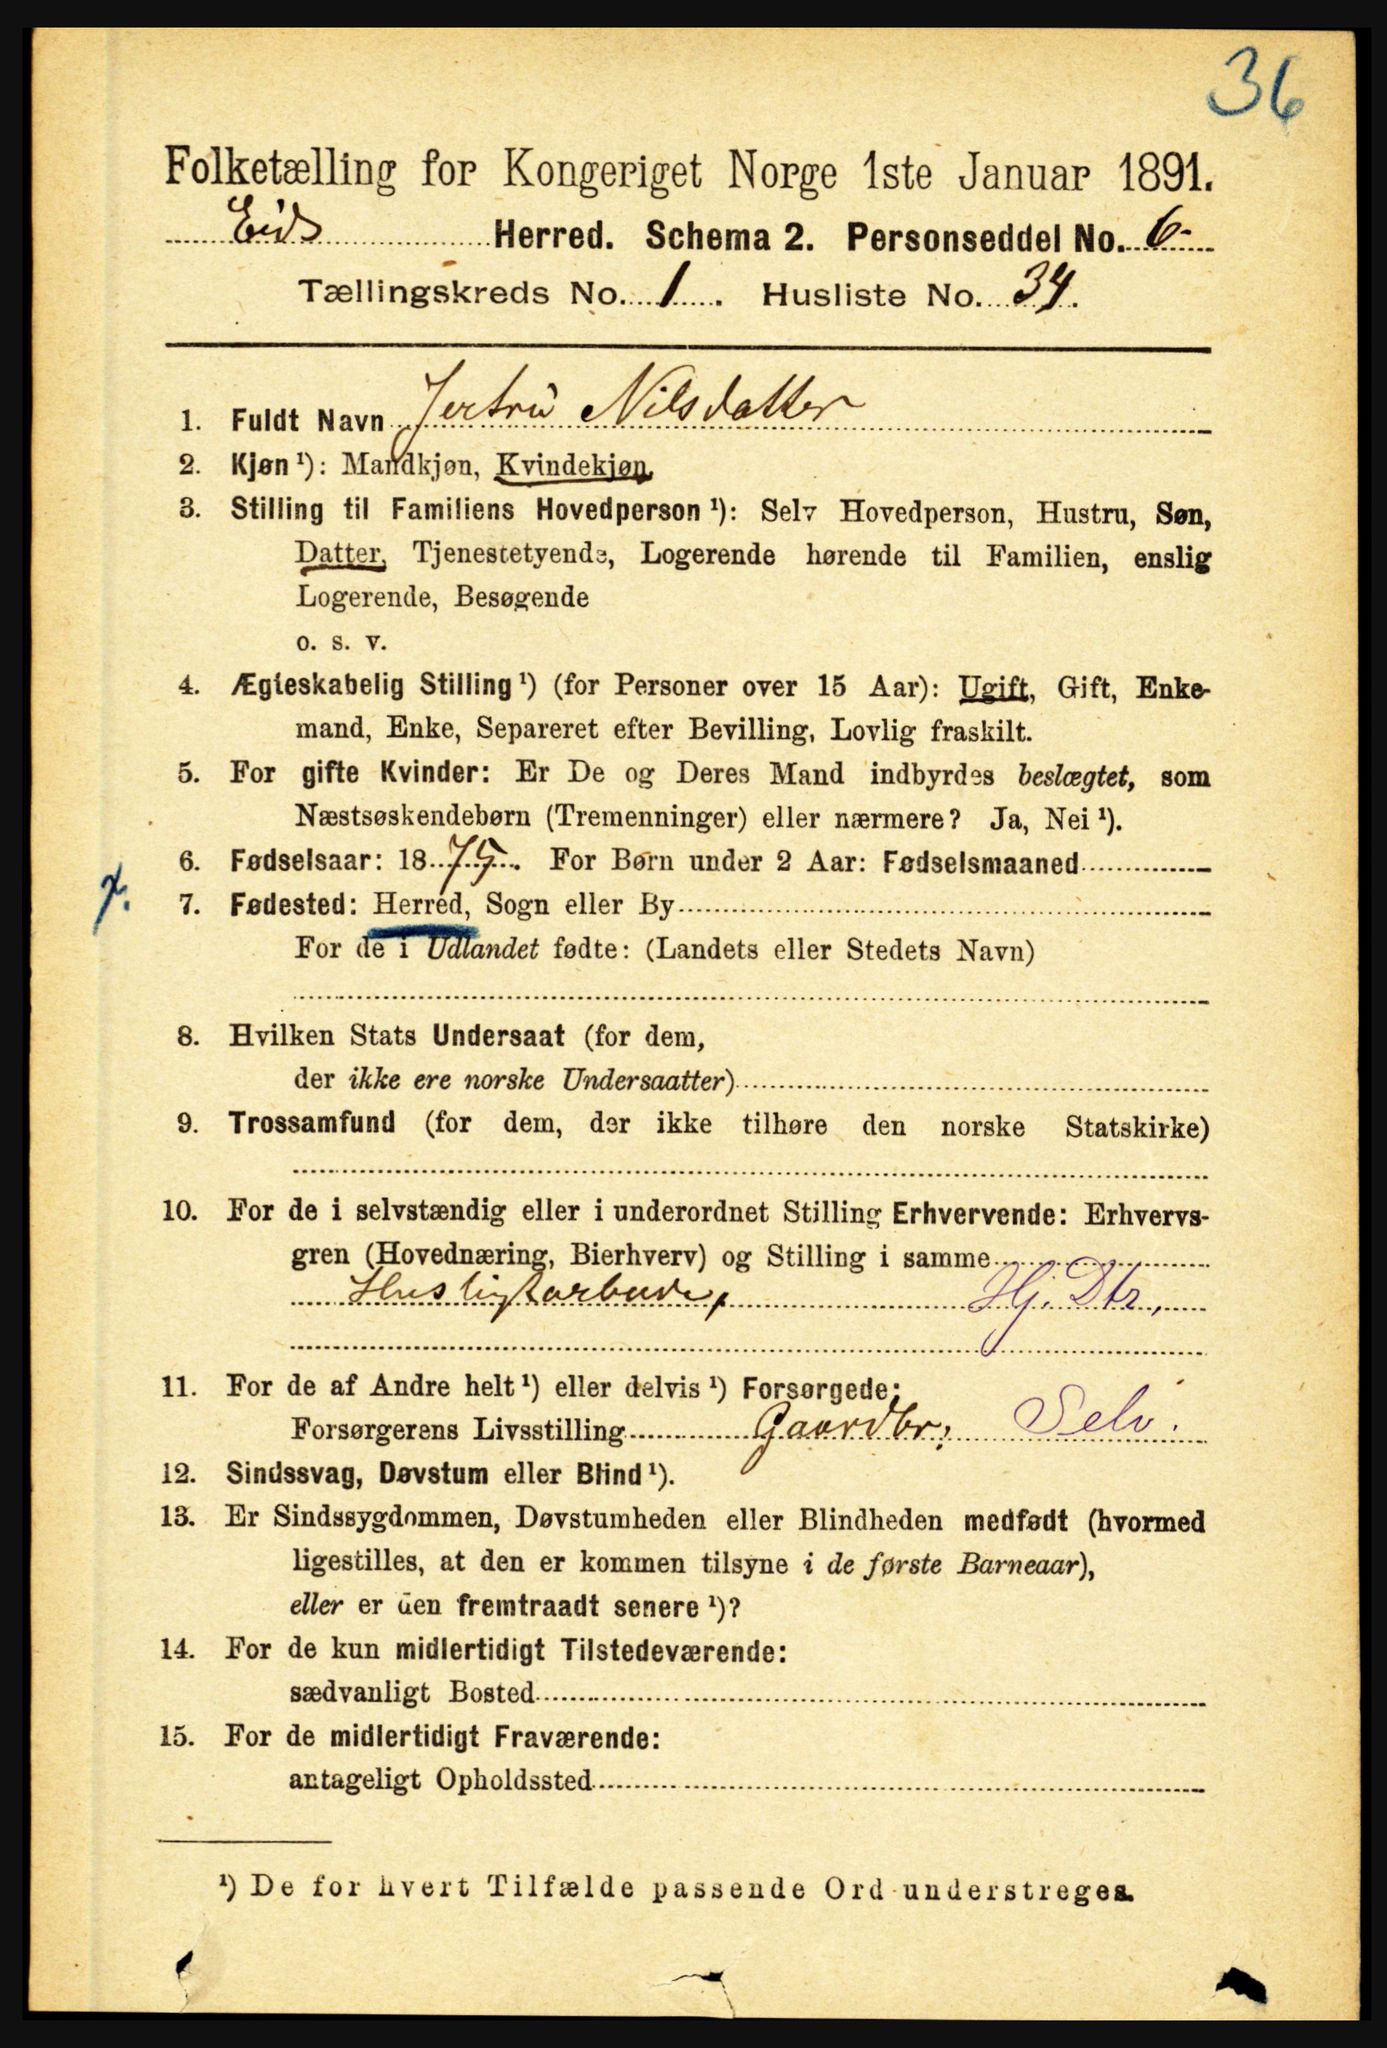 36
Folketælling for Kongeriget Norge 1ste Januar 1891.
Eids Herred. Schema 2. Personseddel No. 6
Tællingskreds No. 1. Husliste No. 34.
1. Fuldt Navn Jertrü Nilsdatter
2. Kjøn ¹): Mandkjøn, Kvindekjøn
3. Stilling til Familiens Hovedperson ¹): Selv Hovedperson, Hustru, Søn,
Datter, Tjenestetyende, Logerende hørende til Familien, enslig
Logerende, Besøgende
o. s. v.
4. Ægteskabelig Stilling ¹) (for Personer over 15 Aar): Ugift, Gift, Enke-
mand, Enke, Separeret efter Bevilling, Lovlig fraskilt.
5. For gifte Kvinder: Er De og Deres Mand indbyrdes beslægtet, som
Næstsøskendebørn (Tremenninger) eller nærmere? Ja, Nei ¹).
6. Fødselsaar: 1875. For Børn under 2 Aar: Fødselsmaaned
7. Fødested: Herred, Sogn eller By
For de i Udlandet fødte: (Landets eller Stedets Navn)
8. Hvilken Stats Undersaat (for dem,
der ikke ere norske Undersaatter)
9. Trossamfund (for dem, der ikke tilhøre den norske Statskirke)
10. For de i selvstændig eller i underordnet Stilling Erhvervende: Erhvervs-
gren (Hovednæring, Bierhverv) og Stilling i samme
Husligtarbeide, Hj. Dtr,
11. For de af Andre helt ¹) eller delvis ¹) Forsørgede:
Forsørgerens Livsstilling Gaardbr; Selv.
12. Sindssvag, Døvstum eller Blind ¹).
13. Er Sindssygdommen, Døvstumheden eller Blindheden medfødt (hvormed
ligestilles, at den er kommen tilsyne i de første Barneaar),
eller er den fremtraadt senere ¹)?
14. For de kun midlertidigt Tilstedeværende:
sædvanligt Bosted
15. For de midlertidigt Fraværende:
antageligt Opholdssted
¹) De for hvert Tilfælde passende Ord understreges.